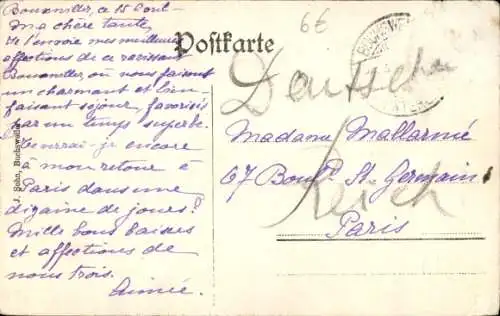 Bouxwiller, ce 15 Août
Ma chère tante,
Je t'envoie mes meilleures
affections de ce ravissant
Bouxwiller, où nous faisons
un charmant et bien-
faisant séjour, favorisés
par un temps superbe.
Te verrai-je encore
à mon retour à
Paris dans une
dizaine de jours?
Mille bons baisers
et affections de
nous trois.
Aimée.
J. Sohn, Buchsweiler
6€
Postkarte
Deutsches
Reich
Madame Mallarmé
67 Boulᵈ St Germain
Paris